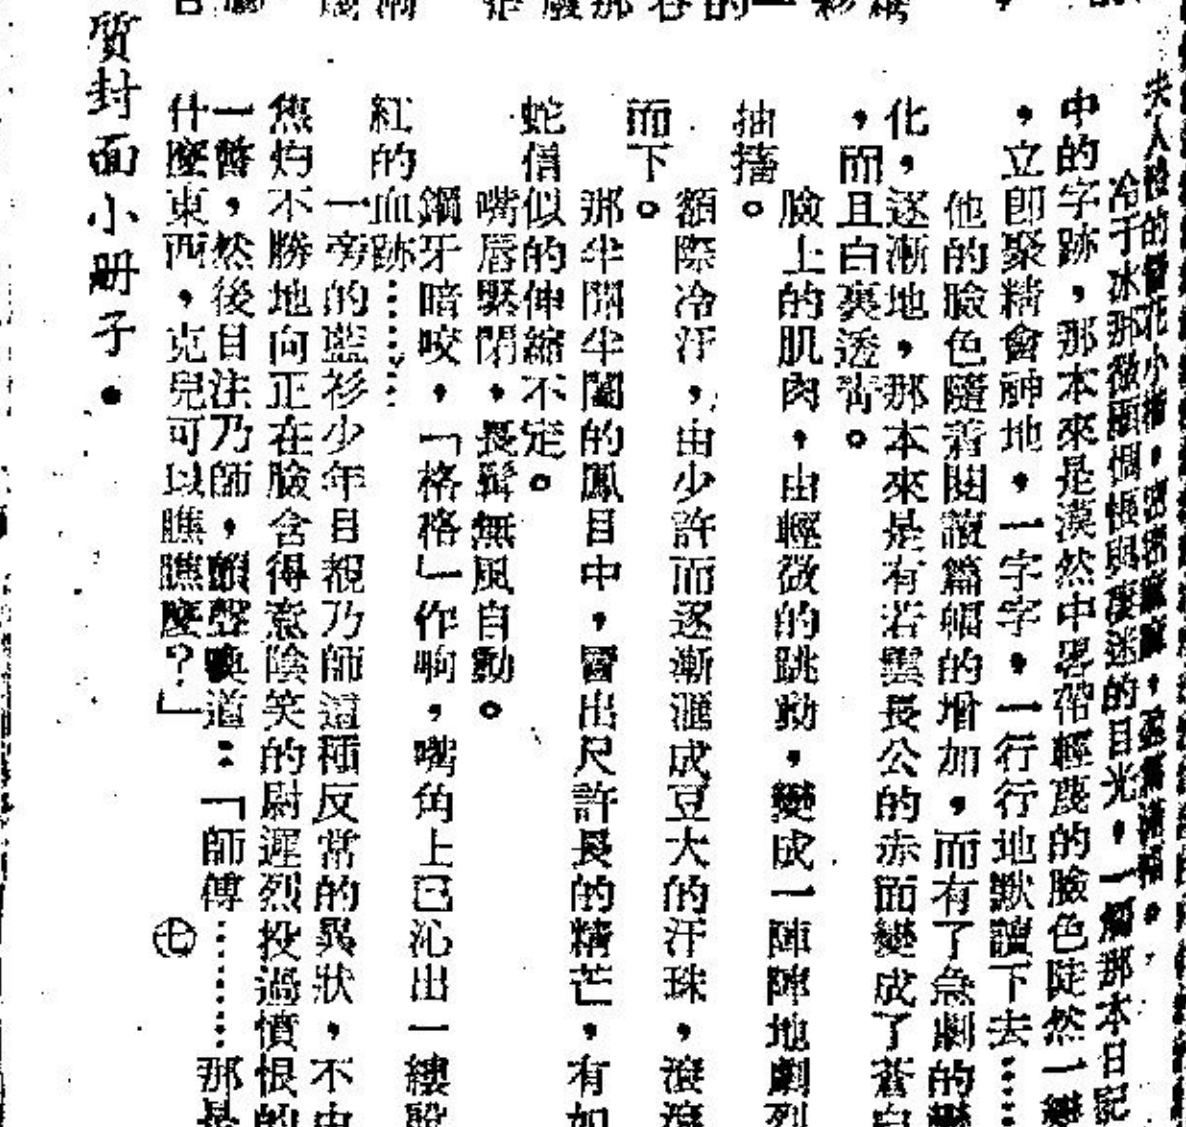 冷于冰那微顯惆悵與淒迷的目光，一觸那本日記
中的字跡，那本來是漠然中畧帶輕蔑的臉色陡然一變
，立即聚精會神地，一字字，一行行地默讀下去……
他的臉色隨着閱讀篇幅的增加，而有了急劇的變
化，逐漸地，那本來是有若雲長公的赤面變成了蒼白
，而且白裏透青。
臉上的肌肉，由輕微的跳動，變成一陣陣地劇烈
抽搐。
額際冷汗，由少許而逐漸滙成豆大的汗珠，滾滾
而下。
那半開半闔的鳳目中，露出尺許長的精芒，有如
蛇信似的伸縮不定。
嘴唇緊閉，長髯無風自動。
鋼牙暗咬，「格格」作响，嘴角上已沁出一縷殷
紅的血跡……
一旁的藍衫少年目覩乃師這種反常的異狀，不由
焦灼不勝地向正在臉含得意陰笑的尉遲烈投過憤恨的
一瞥，然後目注乃師，顫聲喚道：「師傅……那是
什麼東西，克兒可以瞧瞧麼？」
㊆
質封面小册子．